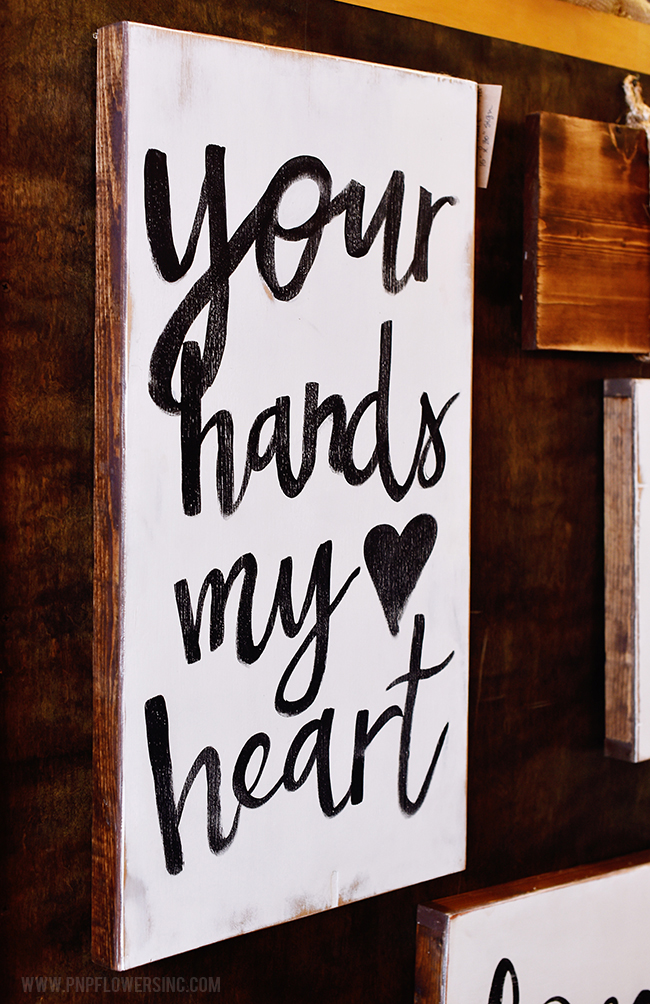 your
hands
my ♥
heart
WWW.PNPFLOWERSINC.COM